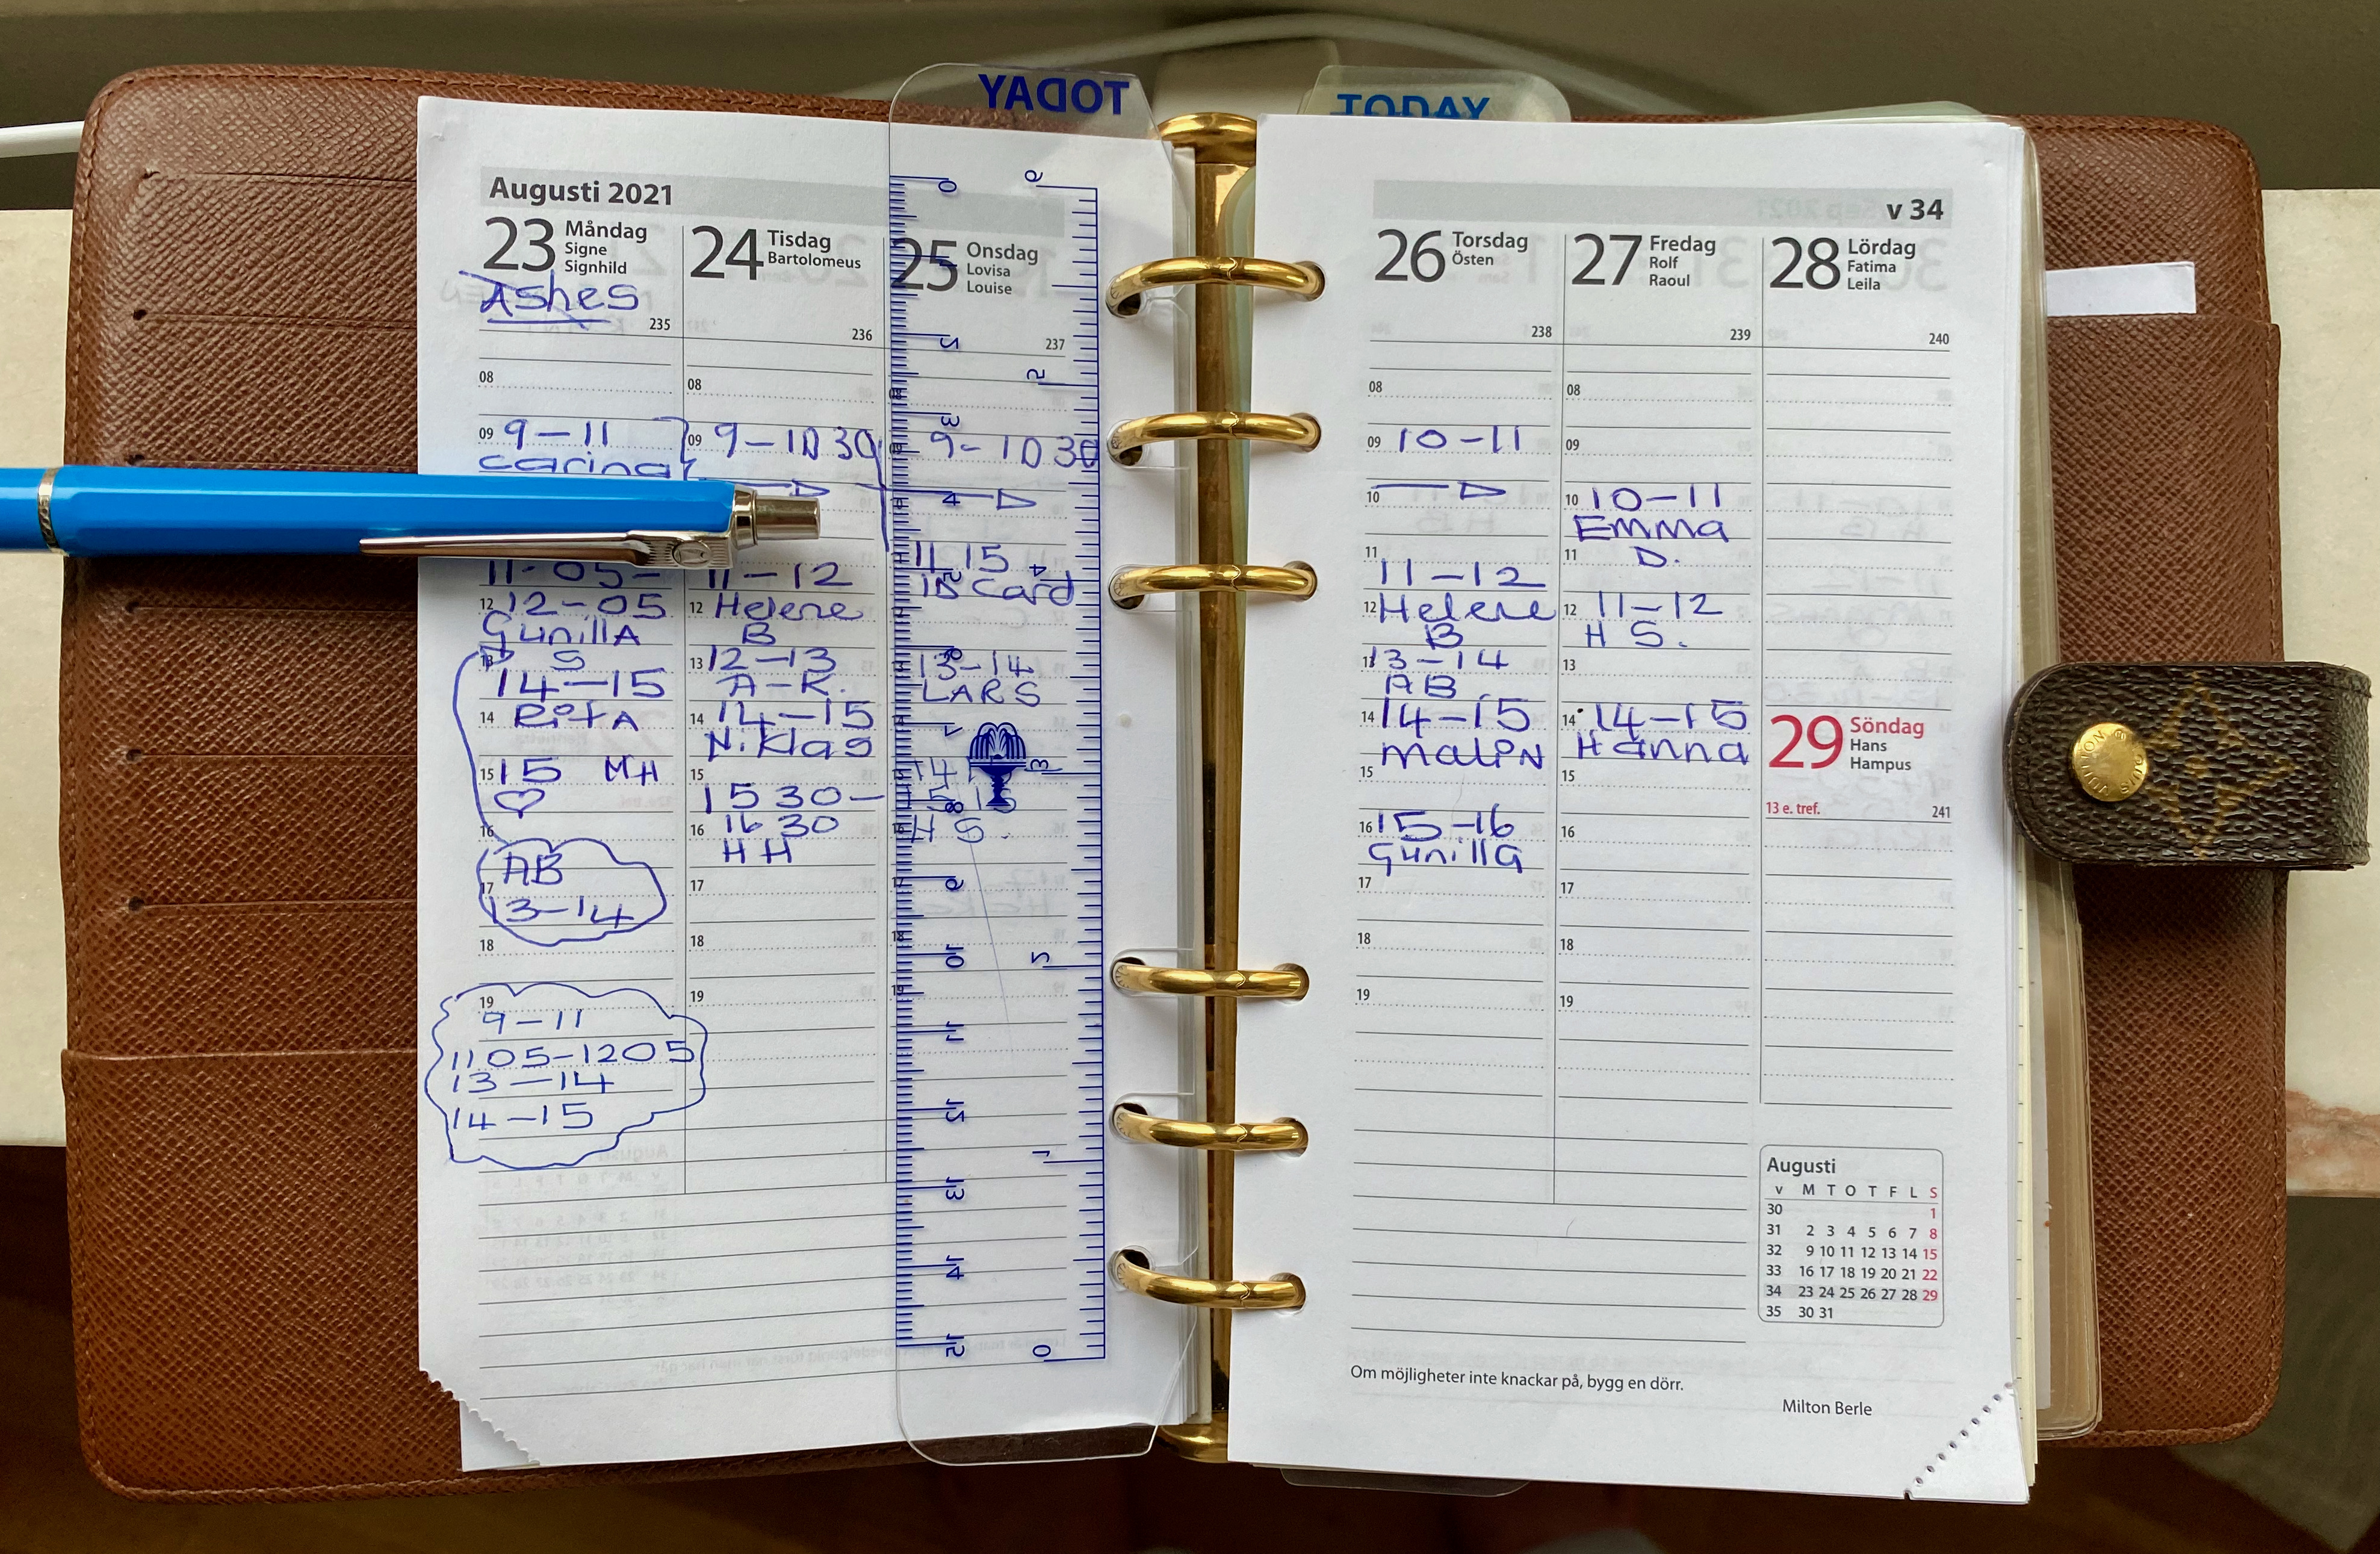 TODAY
TODAY
Augusti 2021
23 Måndag
Signe
Signhild
Ashes
235
08
09 9-11
carina
11-05-
12 12-05
Gunilla
S
13
14-15
14 Rita
15 15 MH
♡
16
AB
17
13-14
18
19
9-11
1105-1205
13-14
14-15
24 Tisdag
Bartolomeus
236
08
09 9-10 30
11-12
12 Helene
B
13 12-13
A-K.
14 14-15
Niklas
15
1530-
16 1630
HH
17
18
19
25 Onsdag
Lovisa
Louise
237
9-10 30
11 15
ID card
13-14
LARS
H S.
18
19
0
1
2
3
4
5
6
0
2
3
4
5
7
8
9
10
11
12
13
14
15
v 34
26 Torsdag
Östen
238
08
09 10-11
10
11
11-12
12 Helene
B
13 13-14
AB
14 14-15
Malin
15
16 15-16
Gunilla
17
18
19
27 Fredag
Rolf
Raoul
239
08
09
10 10-11
Emma
11 D.
12 11-12
H S.
13
14 14-15
Hanna
15
16
17
18
19
28 Lördag
Fatima
Leila
240
29 Söndag
Hans
Hampus
13 e. tref. 241
Augusti
v M T O T F L S
30 1
31 2 3 4 5 6 7 8
32 9 10 11 12 13 14 15
33 16 17 18 19 20 21 22
34 23 24 25 26 27 28 29
35 30 31
Om möjligheter inte knackar på, bygg en dörr.
Milton Berle
LOUIS VUITTON